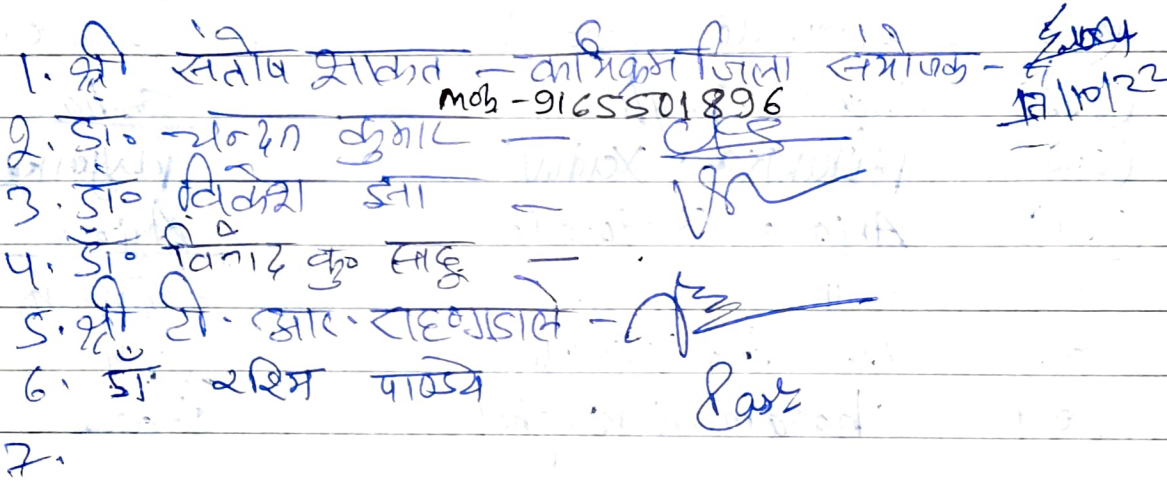 1. श्री संतोष साकत - कार्यक्रम जिला संयोजक -
17/10/22
mob - 9165501896
2. डॉ० चन्दन कुमार —
3. डॉ० विकेश झा —
4. डॉ० विनोद कु० साहू —
5. श्री टी. आर. राहंगडाले -
6. डॉ. रश्मि पाण्डेय
7.